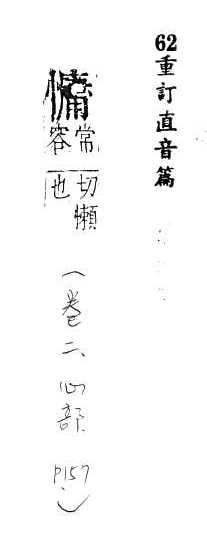 62重訂直音篇
慵常容切懶也（卷二、心部 P.157）